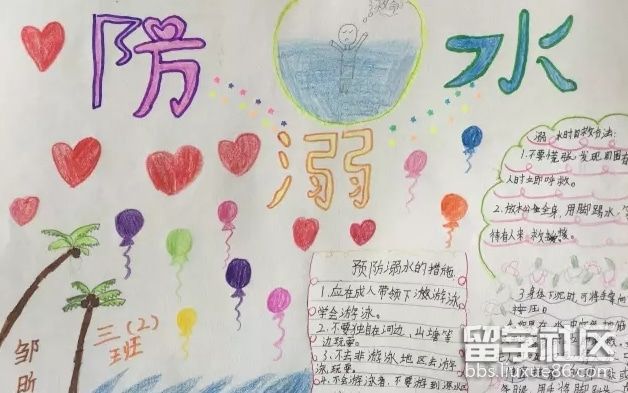 防 水
溺
救命
溺水时自救方法:
1.不要慌张,发现周围有
人时立即呼救。
2.放松全身,用脚踢水,
待有人来救援。
3.身体下沉时,可将手掌向
按压。
预防溺水的措施
1.应在成人带领下游泳
学会游泳。
2.不要独自在河边、山塘等
边玩耍。
3.不去非游泳地区去游
泳玩耍。
4.不会游泳者,不要游到深水区
三(2)
班
邹
昕
留学社区
bbs.liuxue86.com